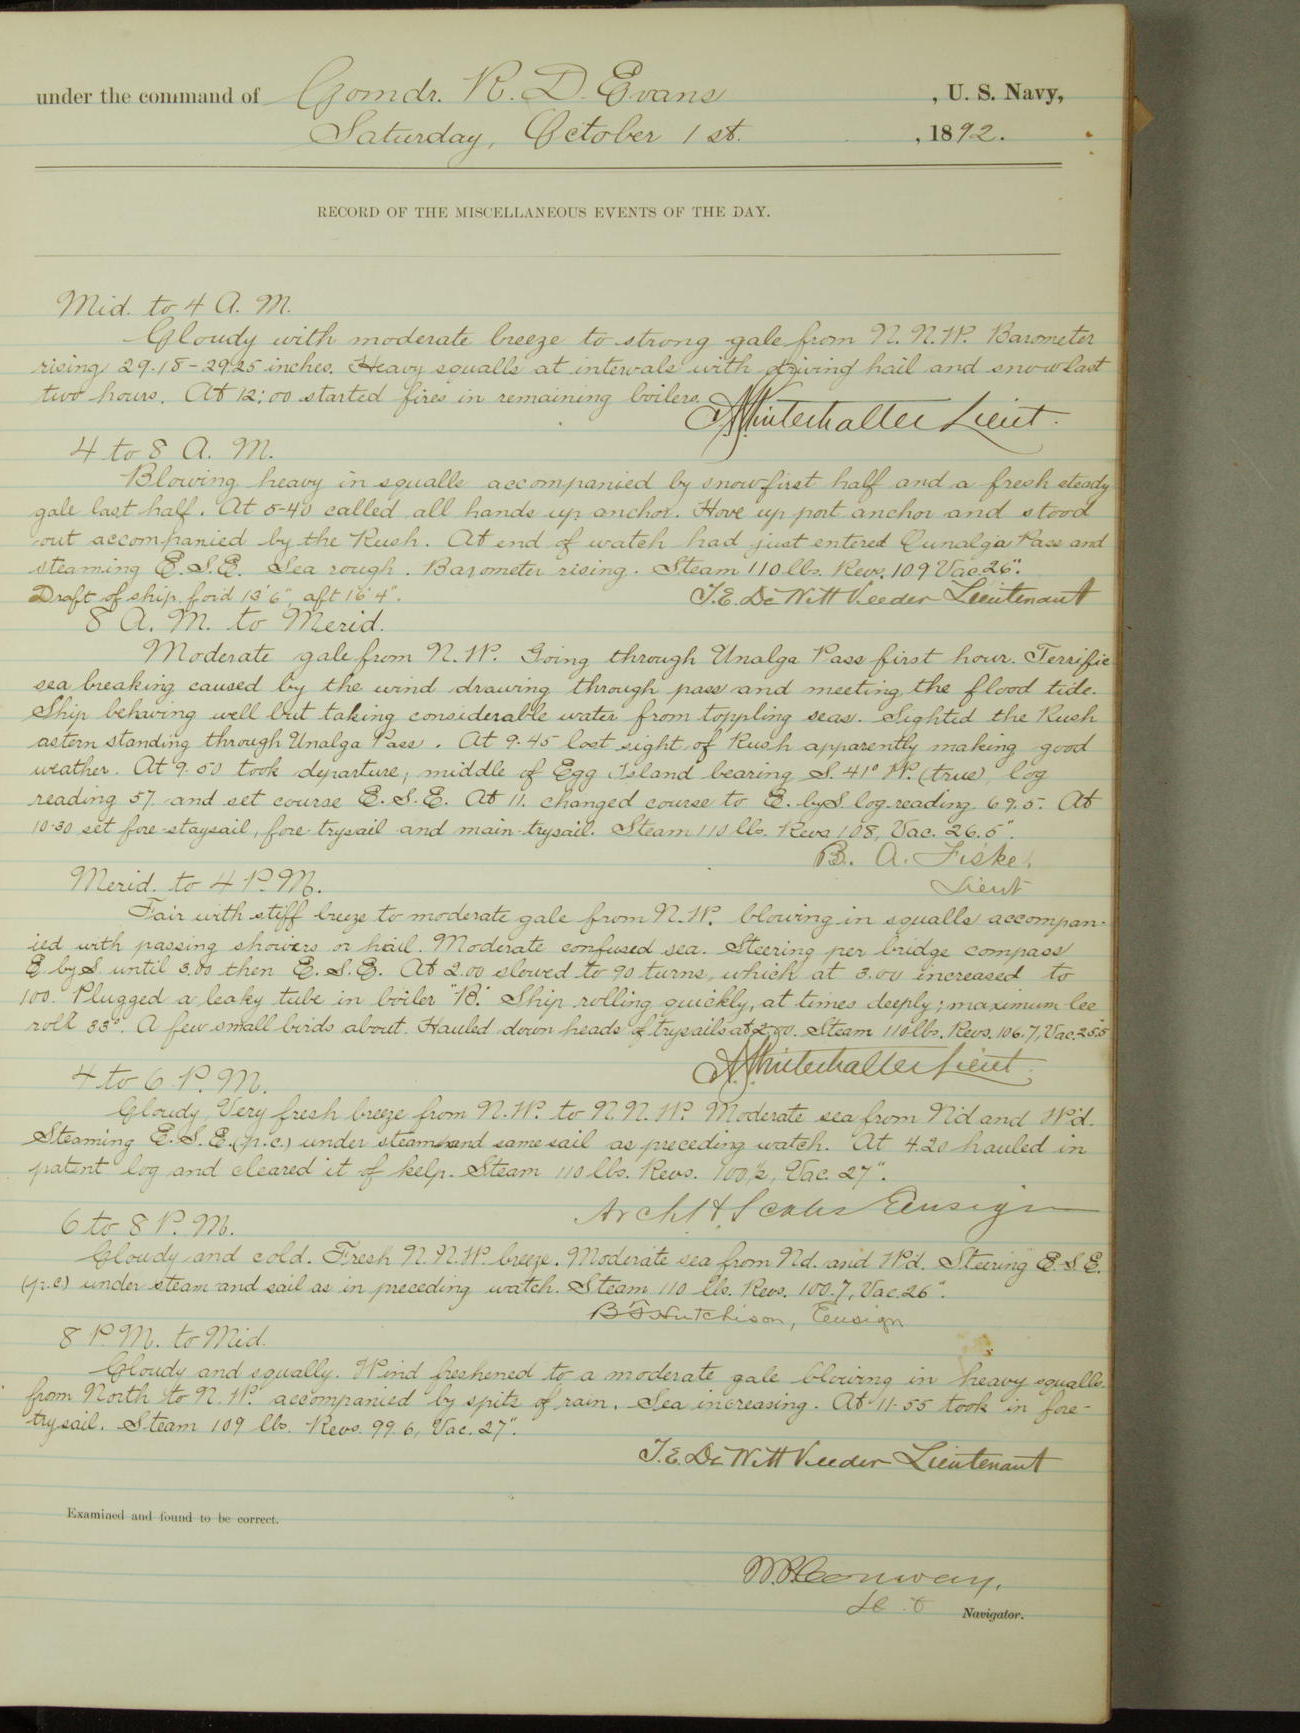 under the command of Comdr. R. D. Evans, U. S. Navy,
Saturday, October 1st., 1892.
RECORD OF THE MISCELLANEOUS EVENTS OF THE DAY.
Mid. to 4 A. M.
Cloudy with moderate breeze to strong gale from N. N. W. Barometer
rising 29.18-29.25 inches. Heavy squalls at intervals with driving hail and snow last
two hours. At 12:00 started fires in remaining boilers.
Winterhalter Lieut.
4 to 8 A. M.
Blowing heavy in squalls accompanied by snow first half and a fresh steady
gale last half. At 5-40 called all hands up anchor. Hove up port anchor and stood
out accompanied by the Rush. At end of watch had just entered Unalga Pass and
steaming E.S.E. Sea rough. Barometer rising. Steam 110 lbs. Revs. 109 Vac. 26".
Draft of ship, for'd 13'6", aft 16'4".
T.E. DeWitt Veeder Lieutenant
8 A. M. to Merid.
Moderate gale from N.W. Going through Unalga Pass first hour. Terrific
sea breaking caused by the wind drawing through pass and meeting the flood tide.
Ship behaving well but taking considerable water from toppling seas. Sighted the Rush
astern standing through Unalga Pass. At 9-45 lost sight of Rush apparently making good
weather. At 9.50 took departure, middle of Egg Island bearing S. 41° W. (true), log
reading 57 and set course E. S. E. At 11. changed course to E. by S. log reading 69.5. At
10-30 set fore-staysail, fore-trysail and main-trysail. Steam 110 lbs. Revs 108, Vac. 26.5".
B. A. Fiske,
Lieut
Merid. to 4 P. M.
Fair with stiff breeze to moderate gale from N.W. blowing in squalls accompan-
ied with passing showers or hail. Moderate confused sea. Steering per bridge compass
E by S until 3.00 then E. S. E. At 2.00 slowed to 90 turns, which at 3.00 increased to
100. Plugged a leaky tube in boiler "B." Ship rolling quickly, at times deeply; maximum lee
roll 33°. A few small birds about. Hauled down heads of trysails at 2.00. Steam 110 lbs. Revs. 106.7, Vac. 25.5
Winterhalter Lieut.
4 to 6 P. M.
Cloudy. Very fresh breeze from N.W. to N. N. W. Moderate sea from N'd and W'd.
Steaming E. S. E. (p.c.) under steam and same sail as preceding watch. At 4.20 hauled in
patent log and cleared it of kelp. Steam 110 lbs. Revs. 100½, Vac. 27".
Arch'd H. Scales Ensign
6 to 8 P. M.
Cloudy and cold. Fresh N. N.W. breeze. Moderate sea from Nd. and W'd. Steering E. S. E.
(p.c) under steam and sail as in preceding watch. Steam 110 lbs. Revs. 100.7, Vac. 26".
B F Hutchison, Ensign
8 P. M. to Mid.
Cloudy and squally. Wind freshened to a moderate gale blowing in heavy squalls
from North to N. W. accompanied by spits of rain. Sea increasing. At 11-55 took in fore-
trysail. Steam 109 lbs. Revs. 99.6, Vac. 27".
T.E. DeWitt Veeder Lieutenant
Examined and found to be correct.
W.P. Conway,
Navigator.